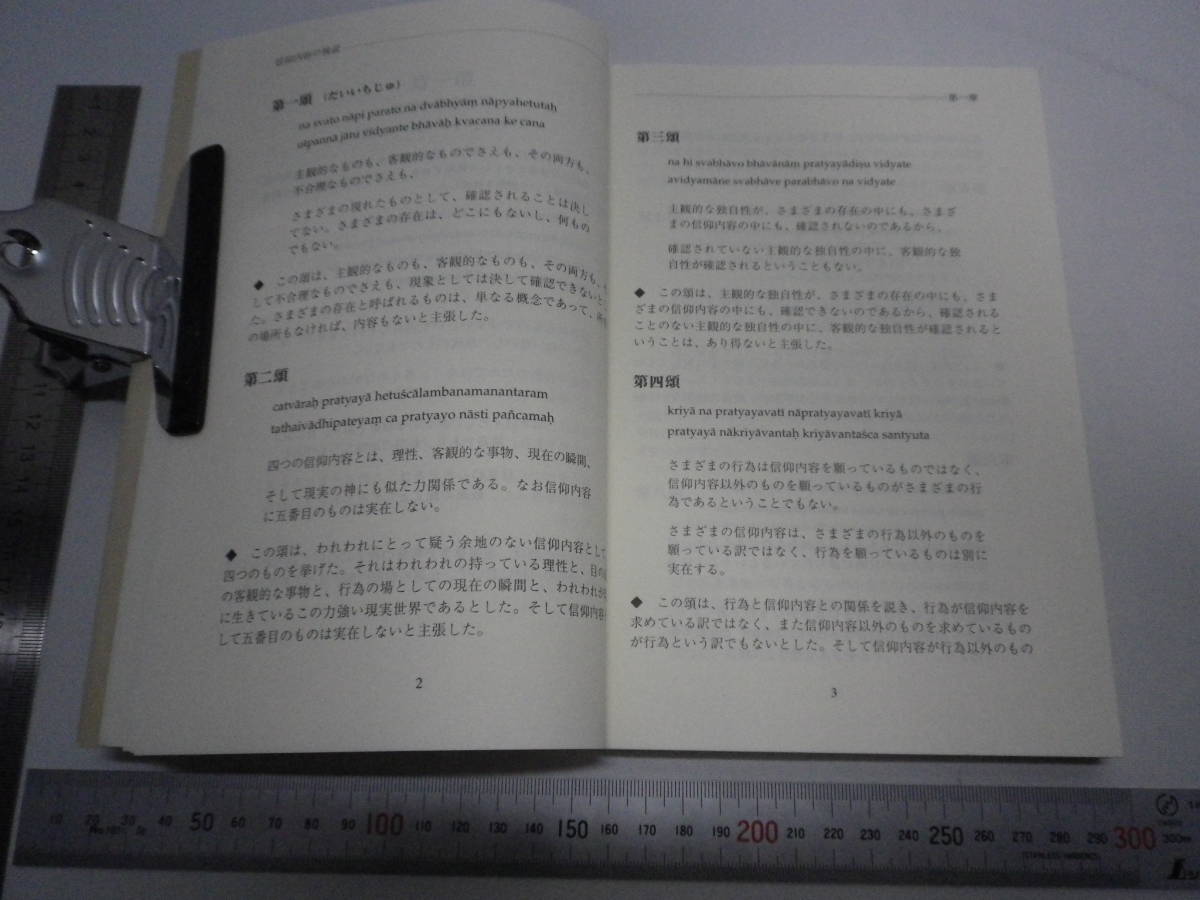 信仰内容の検証
第一頌 (だいいちじゅ)
na svato nāpi parato na dvābhyāṃ nāpyahetutaḥ
utpannā jātu vidyante bhāvāḥ kvacana ke cana
主観的なものも、客観的なものでさえも、その両方も、
不合理なものでさえも、
さまざまの現れたものとして、確認されることは決し
てない。さまざまの存在は、どこにもないし、何もの
でもない。
◆ この頌は、主観的なものも、客観的なものも、その両方も、そ
して不合理なものでさえも、現象としては決して確認できないとし
た。さまざまの存在と呼ばれるものは、単なる概念であって、所在
の場所もなければ、内容もないと主張した。
第二頌
catvāraḥ pratyayā hetuścālambanamanantaram
tathaivādhipateyaṃ ca pratyayo nāsti pañcamaḥ
四つの信仰内容とは、理性、客観的な事物、現在の瞬間、
そして現実の神にも似た力関係である。なお信仰内容
に五番目のものは実在しない。
◆ この頌は、われわれにとって疑う余地のない信仰内容として
四つのものを挙げた。それはわれわれの持っている理性と、目の前
の客観的な事物と、行為の場としての現在の瞬間と、われわれが現
に生きているこの力強い現実世界であるとした。そして信仰内容と
して五番目のものは実在しないと主張した。
2
第一章
第三頌
na hi svabhāvo bhāvānāṃ pratyayādiṣu vidyate
avidyamāne svabhāve parabhāvo na vidyate
主観的な独自性が、さまざまの存在の中にも、さまざ
まの信仰内容の中にも、確認されないのであるから、
確認されていない主観的な独自性の中に、客観的な独
自性が確認されるということもない。
◆ この頌は、主観的な独自性が、さまざまの存在の中にも、さま
ざまの信仰内容の中にも、確認できないのであるから、確認される
ことのない主観的な独自性の中に、客観的な独自性が確認されると
いうことは、あり得ないと主張した。
第四頌
kriyā na pratyayavatī nāpratyayavatī kriyā
pratyayā nākriyāvantaḥ kriyāvantaśca santyuta
さまざまの行為は信仰内容を願っているものではなく、
信仰内容以外のものを願っているものがさまざまの行
為であるということでもない。
さまざまの信仰内容は、さまざまの行為以外のものを
願っている訳ではなく、行為を願っているものは別に
実在する。
◆ この頌は、行為と信仰内容との関係を説き、行為が信仰内容を
求めている訳ではなく、また信仰内容以外のものを求めているもの
が行為という訳でもないとした。そして信仰内容が行為以外のもの
3
10 20 30 40 50 60 70 80 90 100 110 120 130 140 150 160 170 180 190 200 210 220 230 240 250 260 270 280 290 300